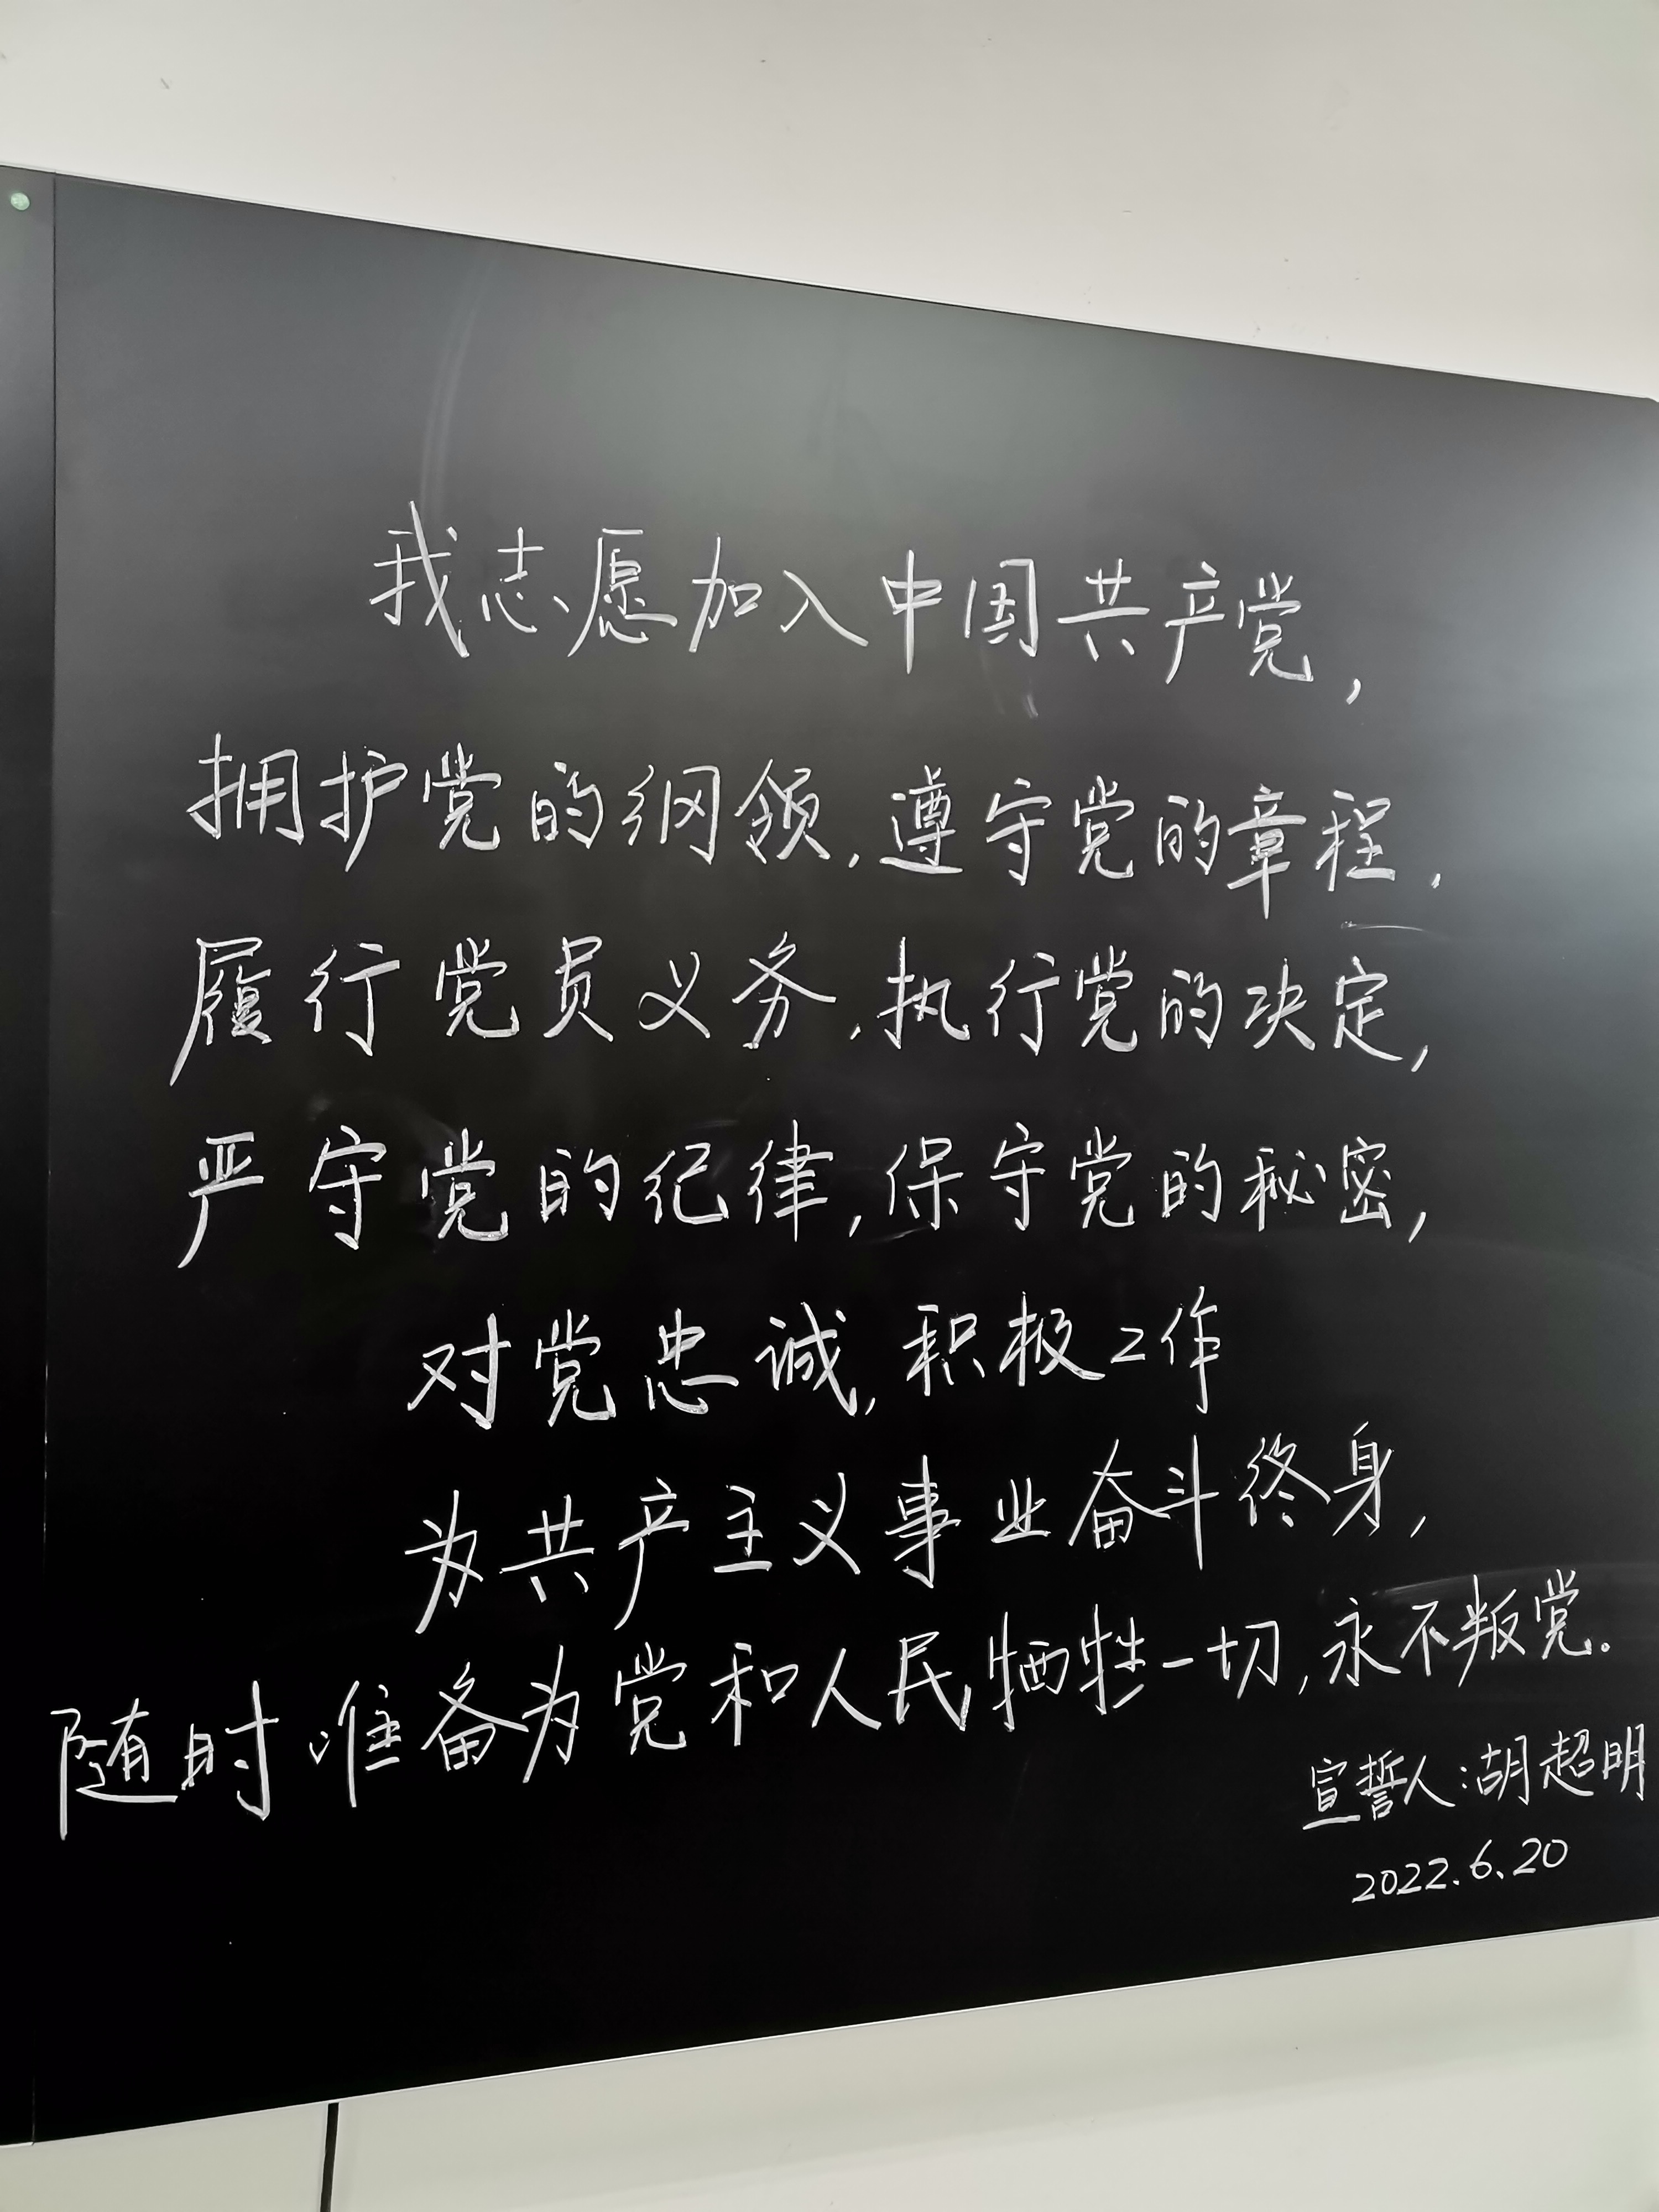 我志愿加入中国共产党,
拥护党的纲领,遵守党的章程,
履行党员义务,执行党的决定,
严守党的纪律,保守党的秘密,
对党忠诚,积极工作
为共产主义事业奋斗终身,
随时准备为党和人民牺牲一切,永不叛党。
宣誓人:胡超明
2022.6.20